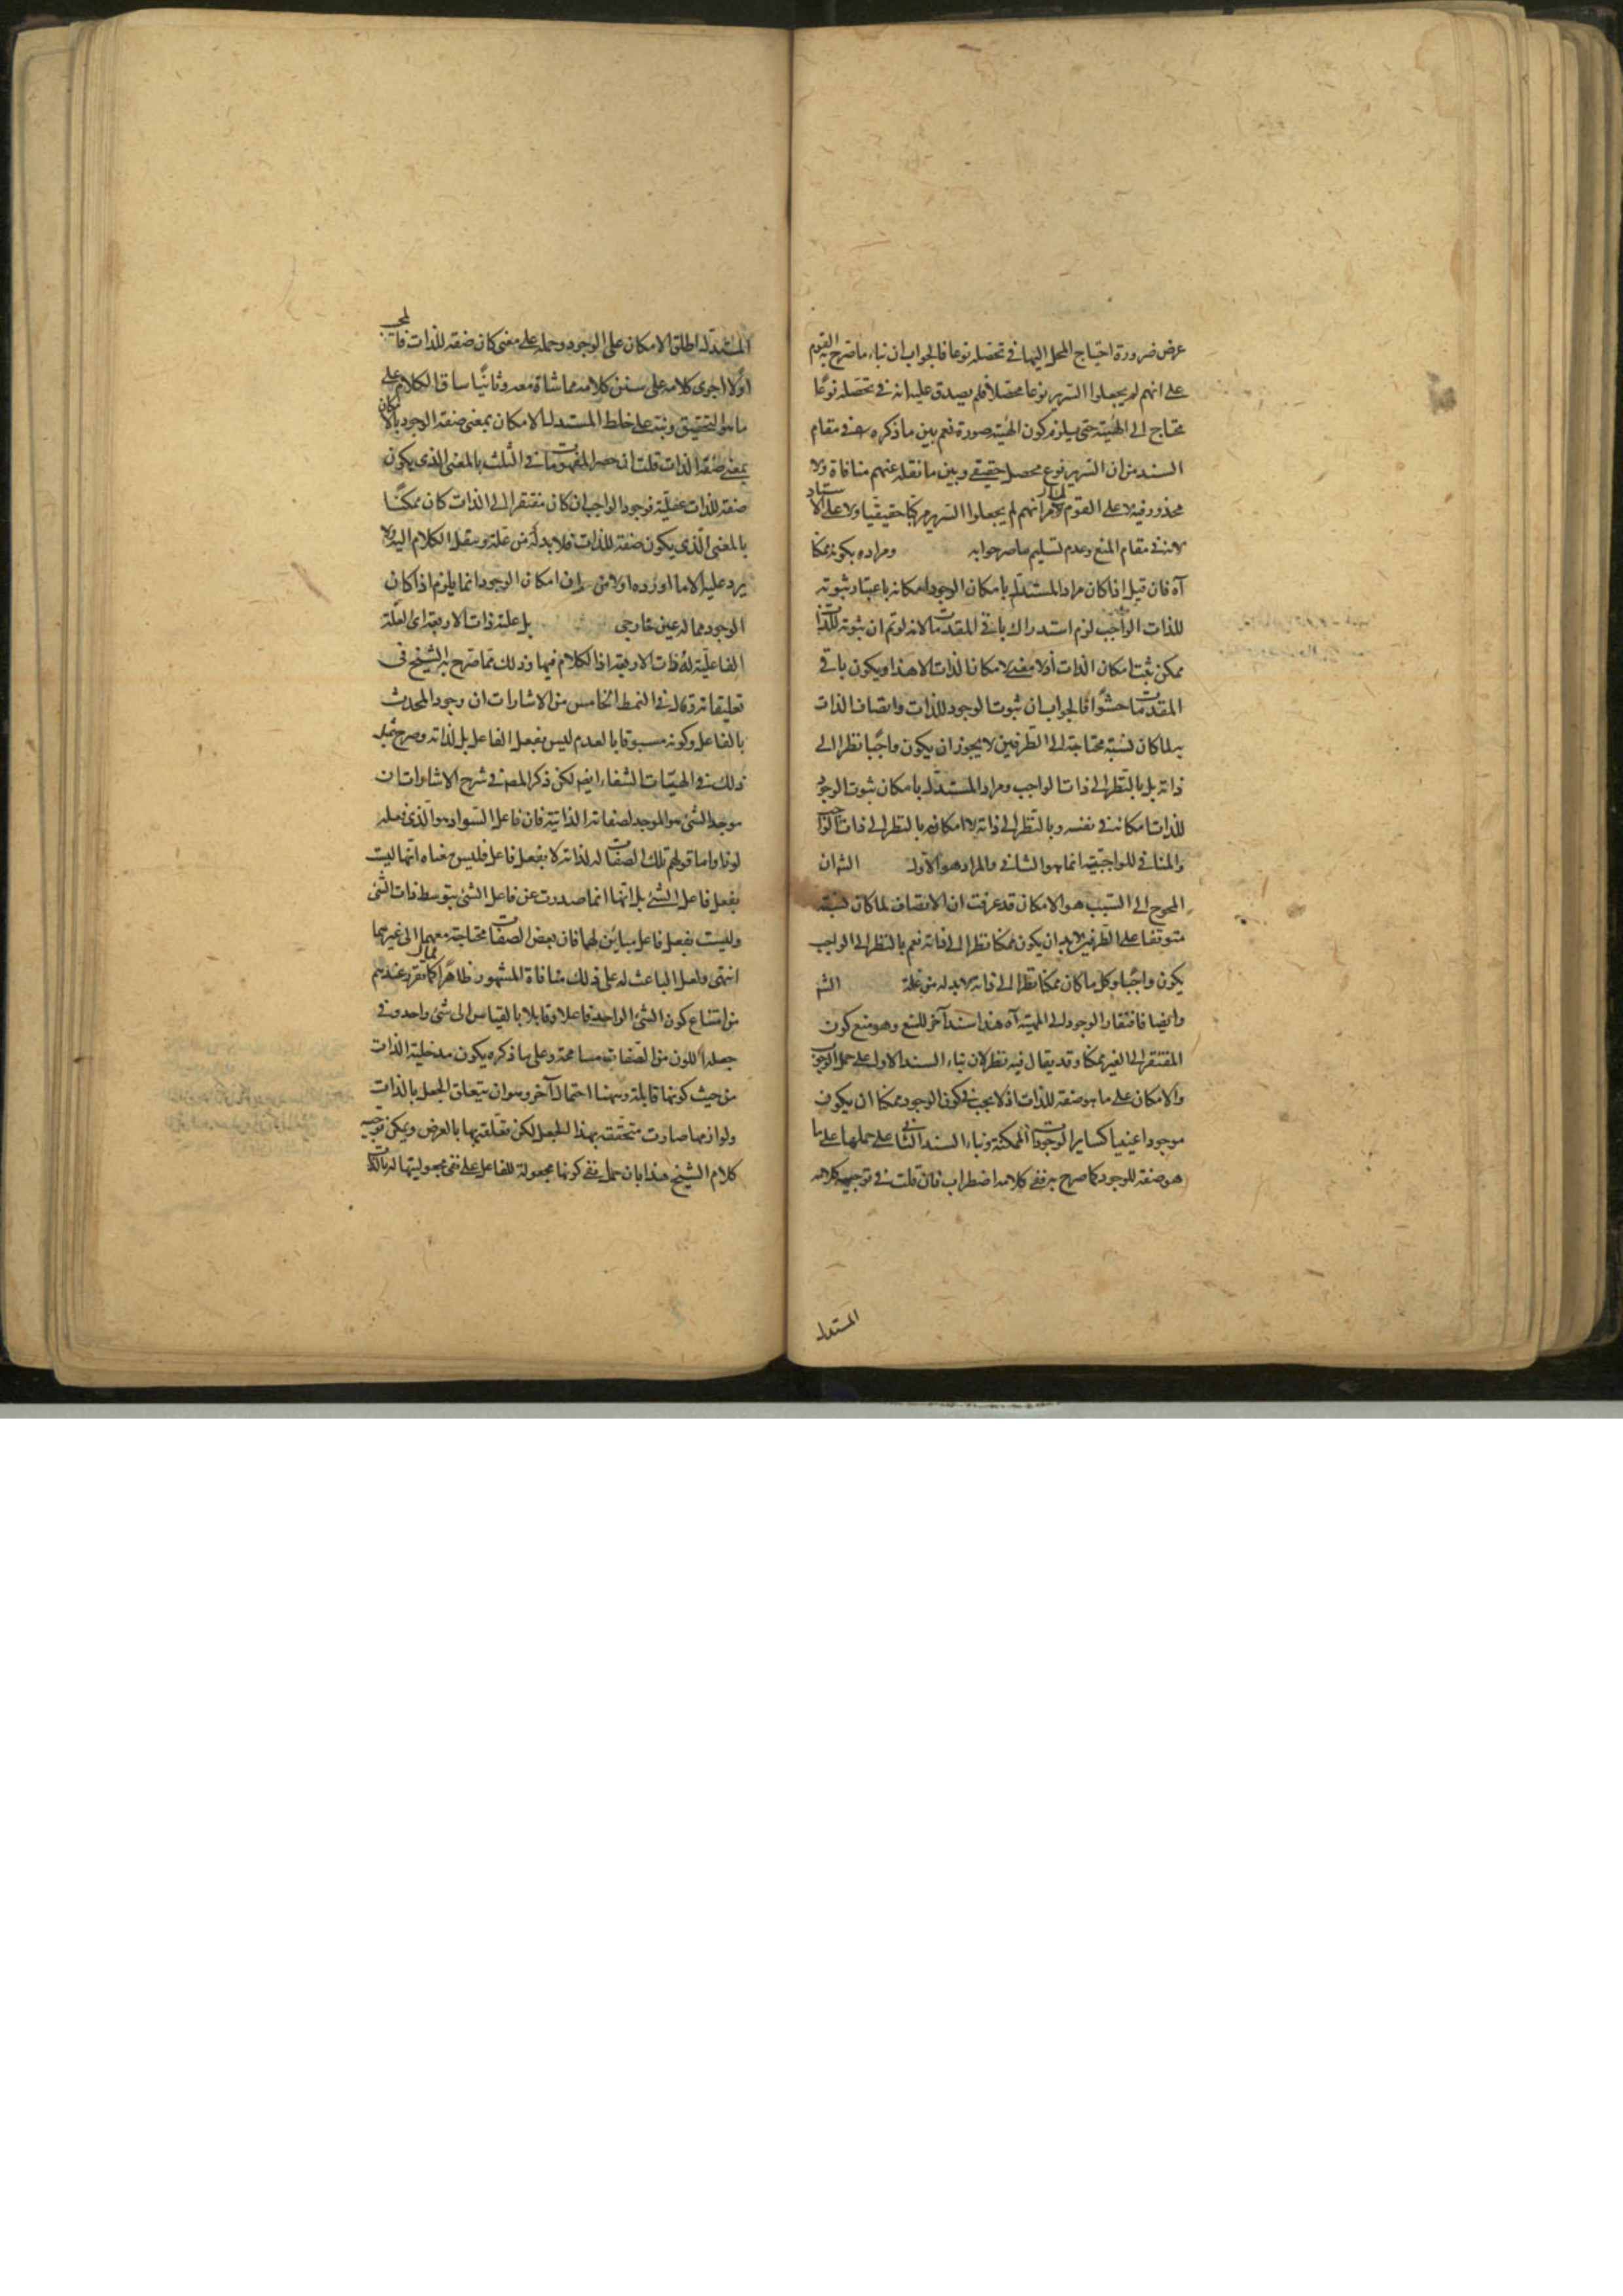 عرض ضرورة احتياج المحل اليها في تحصله نوعا فالجواب ان بناء ما صرح به القوم
على انهم لم يجعلوا السرير نوعا محصلا فلم يصدق عليه انه في تحصله نوعا
محتاج الى الهيئة حتى يلزم كون الهيئة صورة نعم بين ما ذكره في مقام
السند من ان السرير نوع محصل حقيقي وبين ما نقله عنهم منافاة ولا
محذور فيه لا على القوم لانهم لم يجعلوا السرير مركبا حقيقيا ولا على الاستاد
لانه في مقام المنع وعدم تسليم ومراده بكونه ممكنا
آه فان قيل اذا كان مراد المستدل بامكان الوجود امكانه باعتبار ثبوته
للذات الواجب لزم استدراك باقي المقدمات لانه لو تم ان ثبوته للذات
ممكن ثبت امكان الذات اولا معنى لامكان الذات الا هذا ويكون باقي
المقدمات حشوا فالجواب ان ثبوت الوجود للذات واتصاف الذات
به لما كان نسبة محتاجة الى الطرفين لا يجوز ان يكون واجبا نظرا الى
ذاته بل بالنظر الى ذات الواجب ومراد المستدل بامكان ثبوت الوجود
للذات امكانه في نفسه وبالنظر الى ذاته لا امكانه بالنظر الى ذات الواجب
والمنافي للواجبية انما هو الثاني والمراد هو الاول الش ان
المحوج الى السبب هو الامكان قد عرفت ان الاتصاف لما كان نسبة
متوقفا على الطرفين لا بد ان يكون ممكنا نظرا الى ذاته نعم بالنظر الى الواجب
يكون واجبا وكل ما كان ممكنا نظرا الى ذاته لا بد له من علة الش
وايضا فافتقار الوجود الى المهية آه هذا سند آخر للمنع وهو منع كون
المفتقر الى الغير ممكنا وقد يقال فيه نظر لان بناء السند الاول على حمل الوجوب
والامكان على ما هو صفة للذات اذ لا يجب في كون الوجود ممكنا ان يكون
موجودا عينيا كساير الوجودات الممكنة وبناء السند الثاني على حملها على ما
هو صفة للوجود كما صرح به ففي كلامه اضطراب فان قلت في توجيه كلامه
المستدل
المستدل اطلق الامكان على الوجود وحمله على معنى كان صفة للذات
اولا اجرى كلامه على سنن كلامه مماشاة معه وثانيا ساق الكلام على
ما هو التحقيق ونبه على خلط المستدل الامكان بمعنى صفة الوجود بالامكان
بمعنى صفة الذات قلت ان حصر المفهومات في الثلث بالمعنى الذي يكون
صفة للذات عقلية فوجود الواجب ان كان مفتقرا الى الذات كان ممكنا
بالمعنى الذي يكون صفة للذات فلا بد له من علة وينقل الكلام اليه ولا
يرد عليه الا ما اورده اولا من ان امكان الوجود انما يلزم اذا كان
الوجود مما له عين خارجي بل علية ذات الاربعة اى العلة
الفاعلية له ذات الاربعة اذ الكلام فيها وذلك مما صرح به الشيخ في
تعليقاته وقال في النمط الخامس من الاشارات ان وجود المحدث
بالفاعل وكونه مسبوقا بالعدم ليس بفعل الفاعل بل لذاته وصرح بمثل
ذلك في الهيات الشفاء ايضا لكن ذكر المص في شرح الاشارات ان
موجد الشئ هو الموجد لصفاته الذاتية فان فاعل السواد هو الذي فعله
لونا واما قولهم تلك الصفات له لذاته لا بفعل فاعل فليس معناه انها ليست
بفعل فاعل الشئ بل انها انما صدرت عن فاعل الشئ بتوسط ذات الشئ
وليست بفعل فاعل مباين لها فان بعض الصفات محتاجة معهما الى غيرهما
انتهى ولعل الباعث له على ذلك منافاة المشهور ظاهرا لما تقرر عندهم
من امتناع كون الشئ الواحد فاعلا وقابلا بالقياس الى شئ واحد وفي
جعله اللون من الصفات مسامحة وعلى ما ذكره يكون مدخلية الذات
من حيث كونها قابلة وههنا احتمال آخر وهو ان يتعلق الجعل بالذات
ولوازمها صارت متحققة بهذا الجعل لكن تعلقه بها بالعرض ويمكن توجيه
كلام الشيخ هذا بان حمل نفي كونها مجعولة للفاعل على نفي مجعوليتها له بالذات